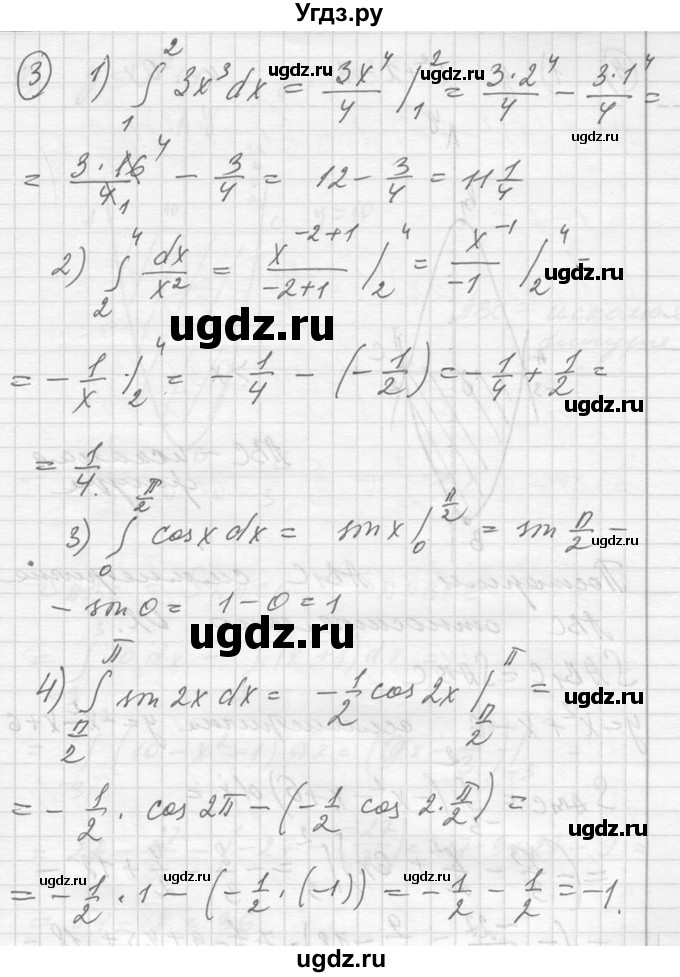 Угдз.ру
③ 1) ∫₁² 3x³ dx = 3x⁴/4 |₁² = 3·2⁴/4 − 3·1⁴/4 =
= 3·16⁴/4₁ − 3/4 = 12 − 3/4 = 11 1/4
2) ∫₂⁴ dx/x² = x⁻²⁺¹/−2+1 |₂⁴ = x⁻¹/−1 |₂⁴ =
= −1/x |₂⁴ = −1/4 − (−1/2) = −1/4 + 1/2 =
= 1/4.
3) ∫₀^(π/2) cos x dx = sin x |₀^(π/2) = sin π/2 −
− sin 0 = 1 − 0 = 1
4) ∫_(π/2)^π sin 2x dx = −1/2 cos 2x |_(π/2)^π =
= −1/2 · cos 2π − (−1/2 cos 2·π/2) =
= −1/2 · 1 − (−1/2 · (−1)) = −1/2 − 1/2 = −1.
ugdz.ru
ugdz.ru
ugdz.ru
ugdz.ru
ugdz.ru
ugdz.ru
ugdz.ru
ugdz.ru
ugdz.ru
ugdz.ru
ugdz.ru